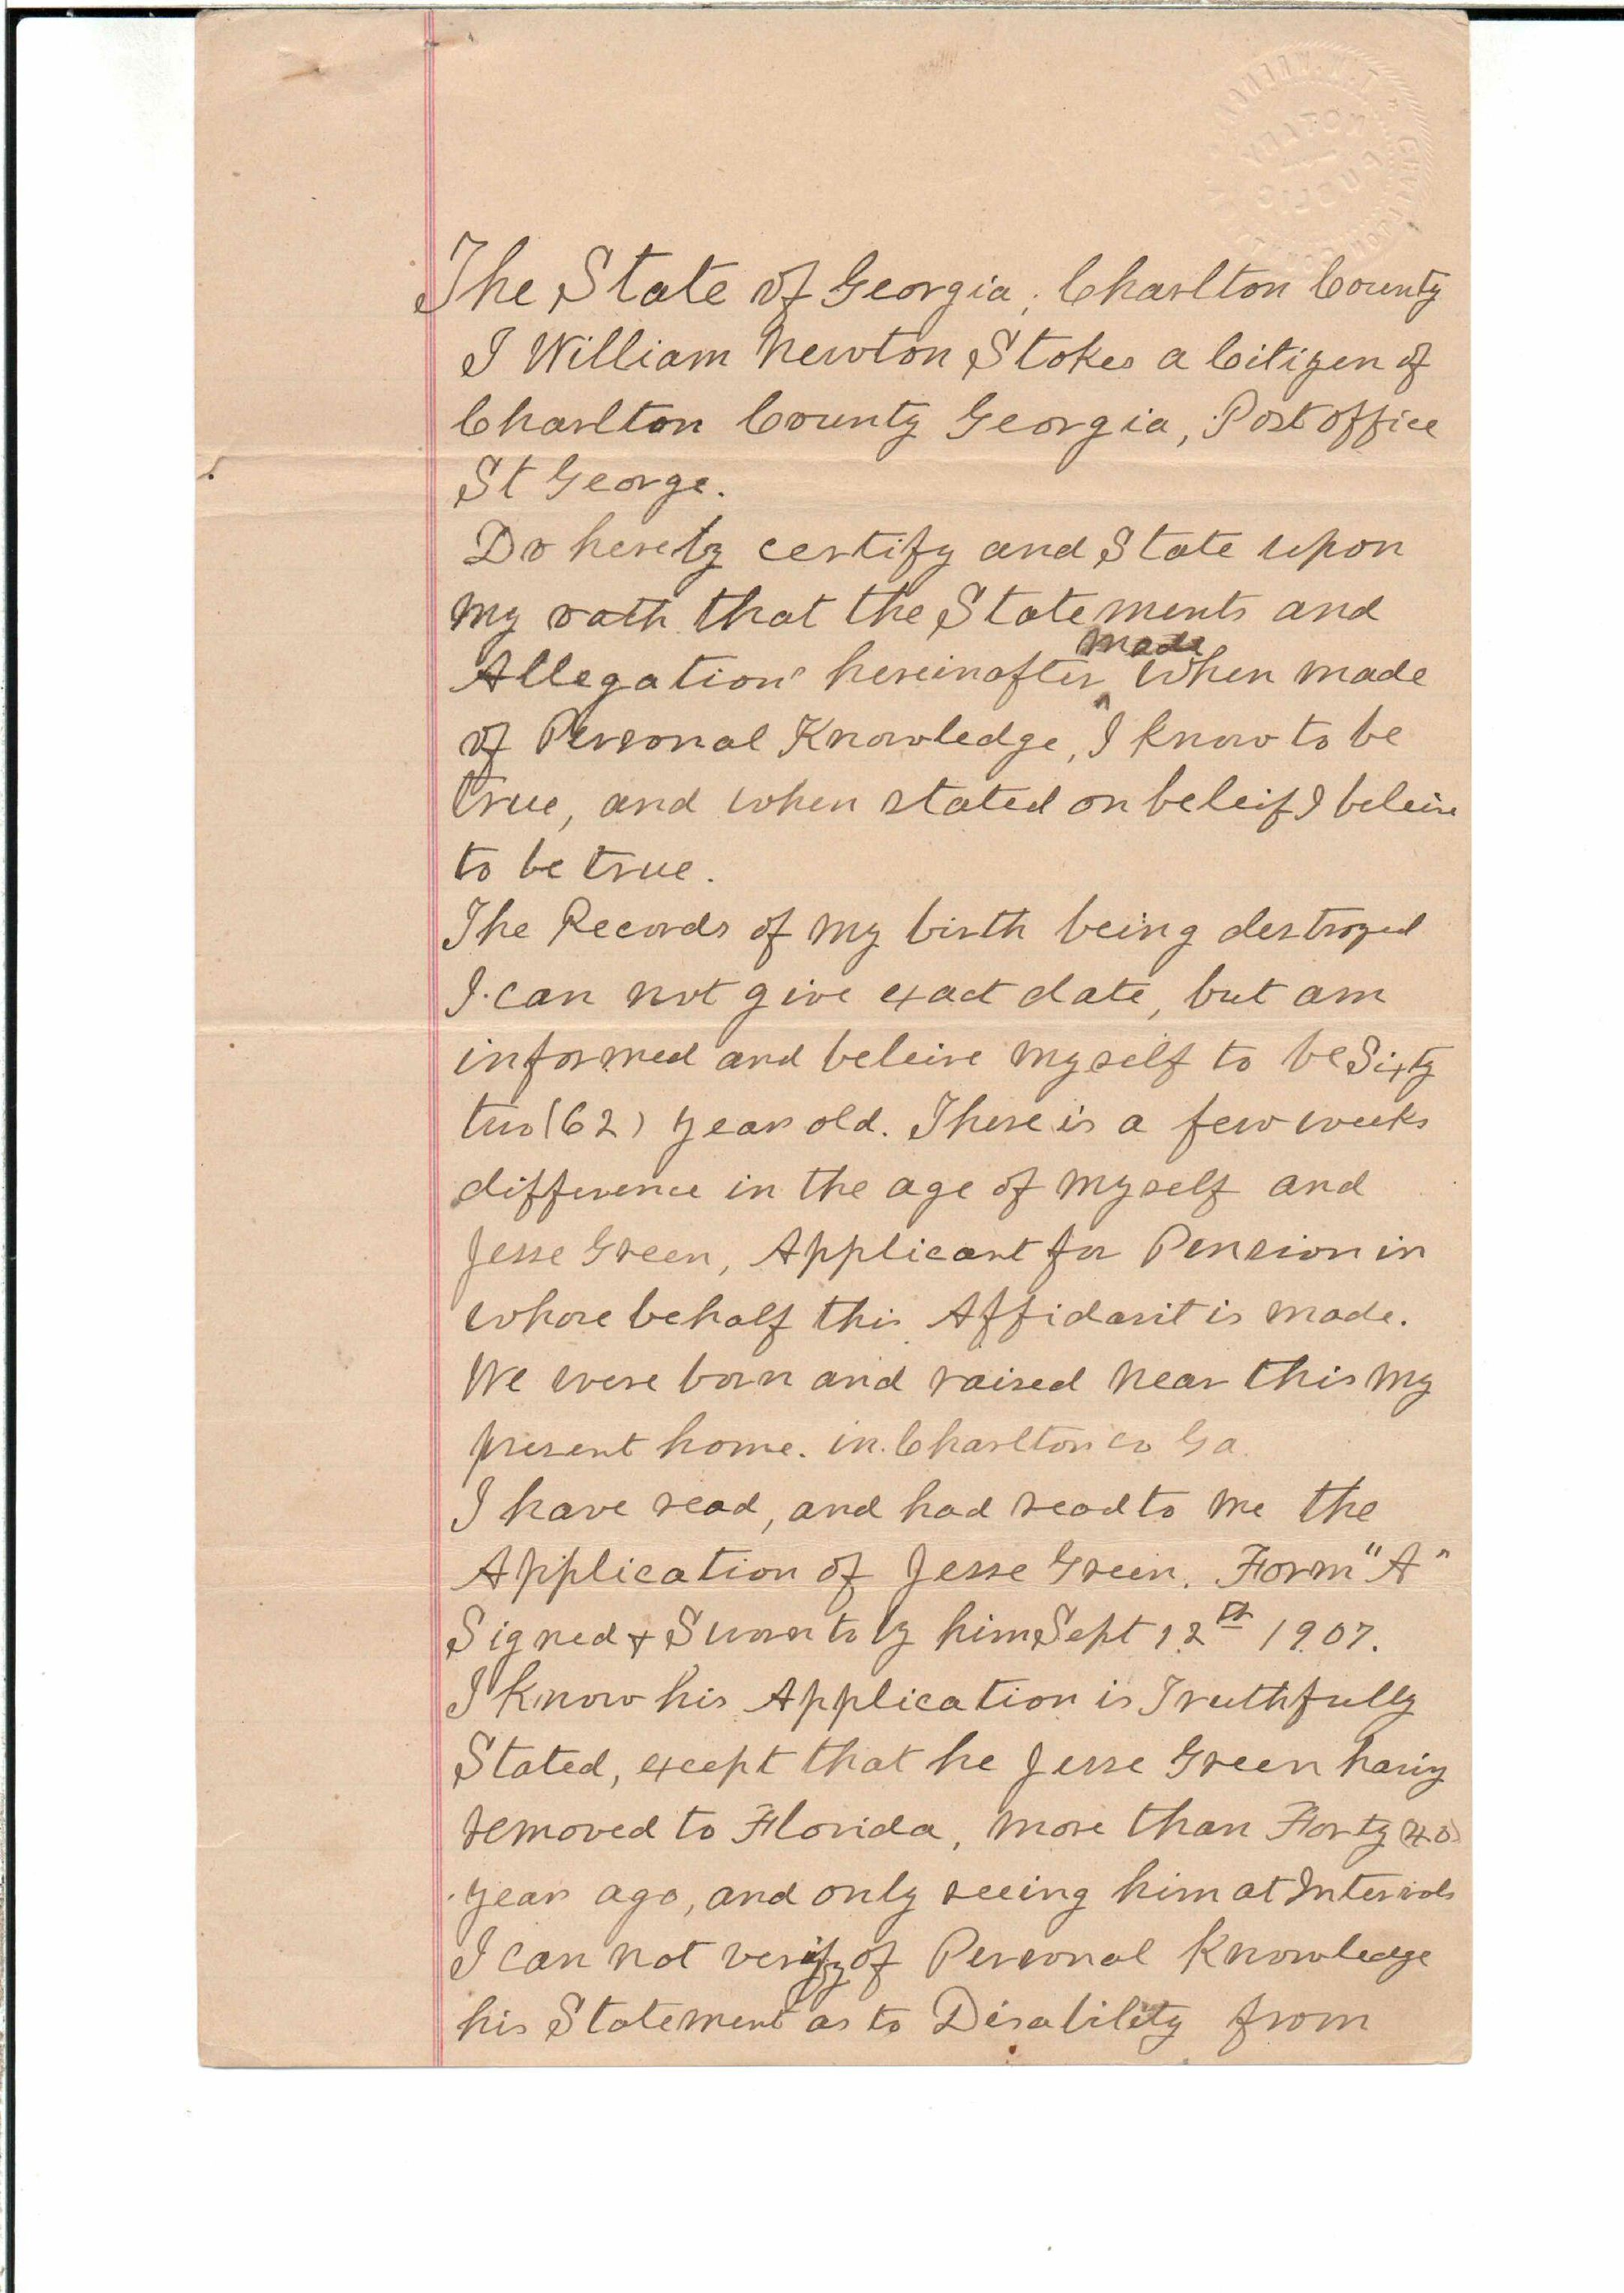 NOTARY
PUBLIC
The State of Georgia, Charlton County
I William Newton Stokes a Citizen of
Charlton County Georgia, Post office
St George.
Do hereby certify and State upon
my oath that the Statements and
made
Allegations hereinafter ^ When made
of Personal Knowledge, I know to be
true, and when stated on beleif I beleive
to be true.
The Records of my birth being destroyed
I can not give exact date, but am
informed and beleive myself to be Sixty
two (62) years old. There is a few weeks
difference in the age of myself and
Jesse Green, Applicant for Pension in
whose behalf this Affidavit is made.
We were born and raised near this my
present home. in Charlton Co Ga.
I have read, and had read to me the
Application of Jesse Green. Form "A"
Signed & Sworn to by him Sept 12th 1907.
I know his Application is Truthfully
Stated, except that he Jesse Green having
removed to Florida, more than Forty (40)
years ago, and only seeing him at Intervals
I can not verify of Personal Knowledge
his Statement as to Disability from